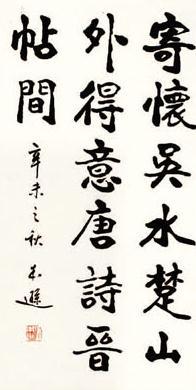 寄懷吳水楚山
外得意唐詩晉
帖間
辛未之秋